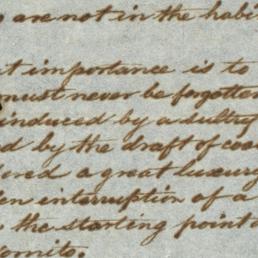 are not in the habi
t importance is to
must never be forgotten
induced by a sultry
d by the draft of coo
ered a great luxury
en interruption of a
the starting point o
vomito.